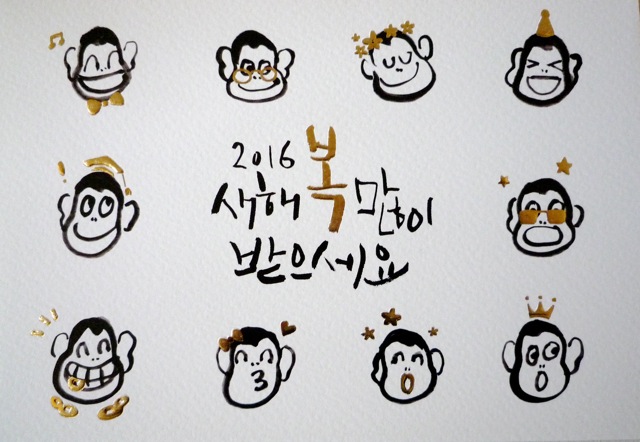 2016
새해 복 많이
받으세요